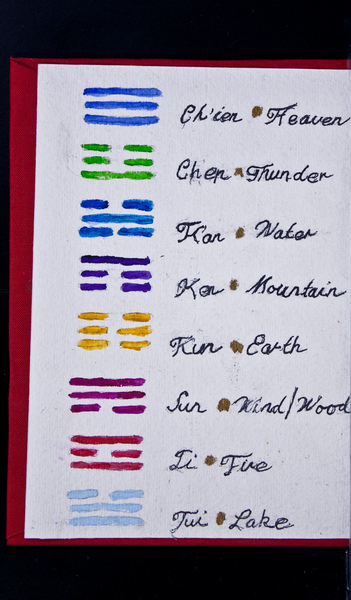 Ch'ien • Heaven
Chen • Thunder
K'an • Water
Ken • Mountain
Kun • Earth
Sun • Wind/Wood
Li • Fire
Tui • Lake